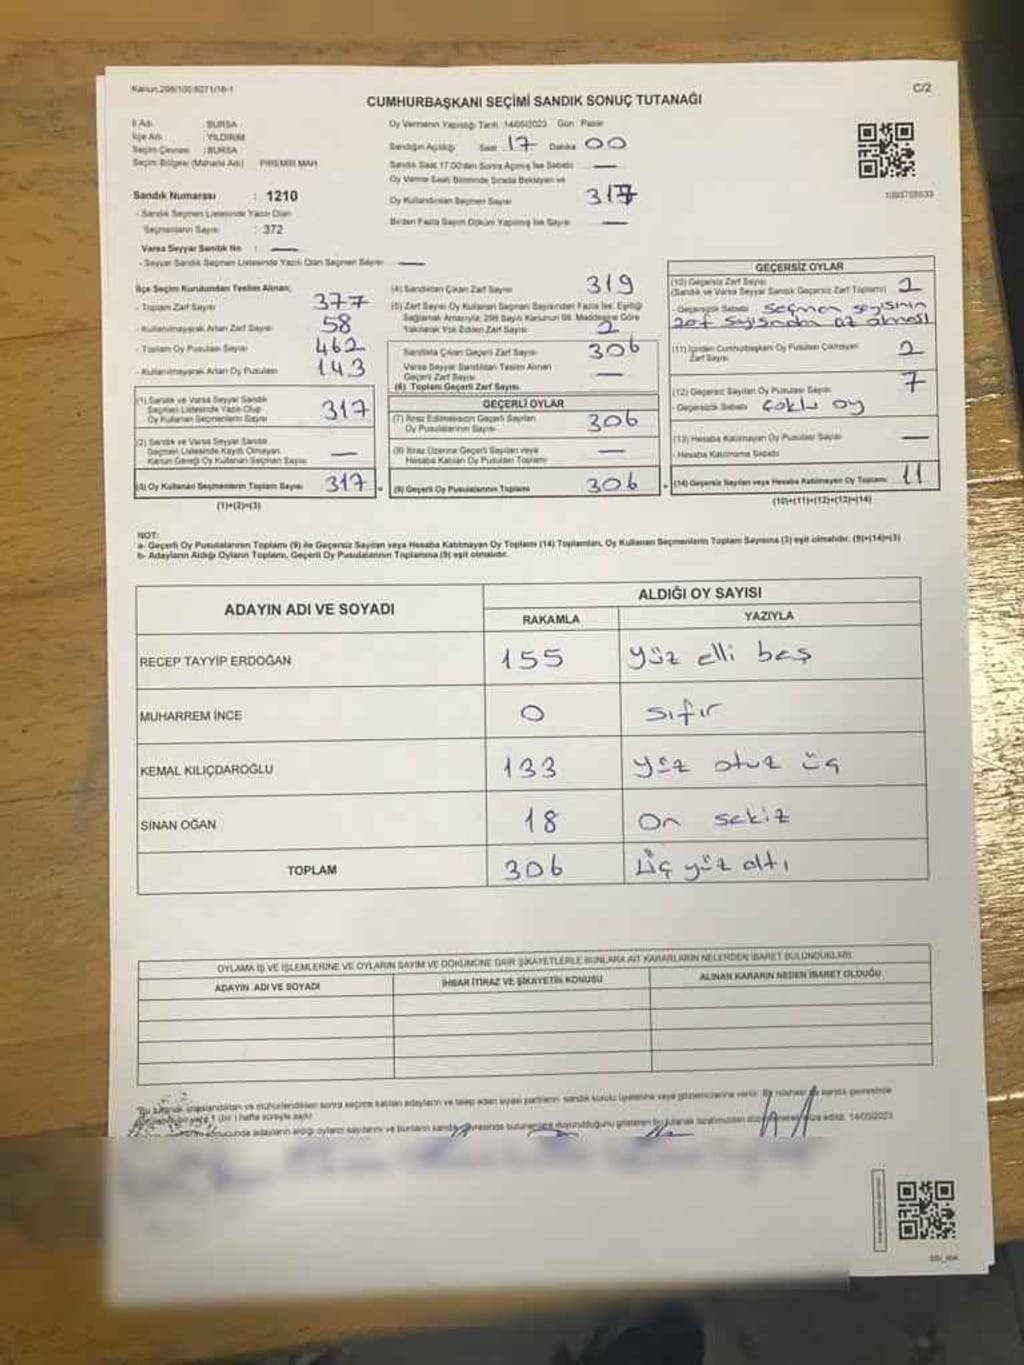 Kanun:298/100:6271/18-1
C/2
CUMHURBAŞKANI SEÇİMİ SANDIK SONUÇ TUTANAĞI
İl Adı : BURSA
İlçe Adı : YILDIRIM
Seçim Çevresi : BURSA
Seçim Bölgesi (Mahalle Adı) PİREMİR MAH
Oy Vermenin Yapıldığı Tarih: 14/05/2023 Gün: Pazar
Sandığın Açıldığı Saat 17 Dakika 00
Sandık Saat 17.00'den Sonra Açılmış İse Sebebi: —
Oy Verme Saati Bitiminde Sırada Bekleyen ve
Oy Kullandırılan Seçmen Sayısı 317
Birden Fazla Sayım Döküm Yapılmış İse Sayısı —
Sandık Numarası : 1210
- Sandık Seçmen Listesinde Yazılı Olan
Seçmenlerin Sayısı : 372
Varsa Seyyar Sandık No : —
- Seyyar Sandık Seçmen Listesinde Yazılı Olan Seçmen Sayısı: —
İlçe Seçim Kurulundan Teslim Alınan;
- Toplam Zarf Sayısı 377
- Kullanılmayarak Artan Zarf Sayısı 58
- Toplam Oy Pusulası Sayısı 462
- Kullanılmayarak Artan Oy Pusulası 143
(1) Sandık ve Varsa Seyyar Sandık
Seçmen Listesinde Yazılı Olup
Oy Kullanan Seçmenlerin Sayısı 317
(2) Sandık ve Varsa Seyyar Sandık
Seçmen Listesinde Kaydı Olmayan
Kanun Gereği Oy Kullanan Seçmen Sayısı —
(3) Oy Kullanan Seçmenlerin Toplam Sayısı 317
(1)+(2)=(3)
(4) Sandıktan Çıkan Zarf Sayısı 319
(5) Zarf Sayısı Oy Kullanan Seçmen Sayısından Fazla İse; Eşitliği
Sağlamak Amacıyla; 298 Sayılı Kanunun 98. Maddesine Göre
Yakılarak Yok Edilen Zarf Sayısı 2
Sandıkta Çıkan Geçerli Zarf Sayısı 306
Varsa Seyyar Sandıktan Teslim Alınan
Geçerli Zarf Sayısı —
(6) Toplam Geçerli Zarf Sayısı
GEÇERLİ OYLAR
(7) İtiraz Edilmeksizin Geçerli Sayılan
Oy Pusulalarının Sayısı 306
(8) İtiraz Üzerine Geçerli Sayılan veya
Hesaba Katılan Oy Pusulası Toplamı —
(9) Geçerli Oy Pusulalarının Toplamı 306
GEÇERSİZ OYLAR
(10) Geçersiz Zarf Sayısı
(Sandık ve Varsa Seyyar Sandık Geçersiz Zarf Toplamı) 2
- Geçersizlik Sebebi seçmen sayısının
zarf sayısından az olması
(11) İçinden Cumhurbaşkanı Oy Pusulası Çıkmayan
Zarf Sayısı 2
(12) Geçersiz Sayılan Oy Pusulası Sayısı 7
- Geçersizlik Sebebi çoklu oy
(13) Hesaba Katılmayan Oy Pusulası Sayısı —
- Hesaba Katılmama Sebebi
(14) Geçersiz Sayılan veya Hesaba Katılmayan Oy Toplamı 11
(10)+(11)+(12)+(13)=(14)
NOT:
a- Geçerli Oy Pusulalarının Toplamı (9) ile Geçersiz Sayılan veya Hesaba Katılmayan Oy Toplamı (14) Toplamları, Oy Kullanan Seçmenlerin Toplam Sayısına (3) eşit olmalıdır. (9)+(14)=(3)
b- Adayların Aldığı Oyların Toplamı, Geçerli Oy Pusulalarının Toplamına (9) eşit olmalıdır.
ADAYIN ADI VE SOYADI ALDIĞI OY SAYISI
RAKAMLA YAZIYLA
RECEP TAYYİP ERDOĞAN 155 yüz elli beş
MUHARREM İNCE 0 sıfır
KEMAL KILIÇDAROĞLU 133 yüz otuz üç
SİNAN OĞAN 18 on sekiz
TOPLAM 306 üç yüz altı
OYLAMA İŞ VE İŞLEMLERİNE VE OYLARIN SAYIM VE DÖKÜMÜNE DAİR ŞİKAYETLERLE BUNLARA AİT KARARLARIN NELERDEN İBARET BULUNDUKLARI
ADAYIN ADI VE SOYADI İHBAR İTİRAZ VE ŞİKAYETİN KONUSU ALINAN KARARIN NEDEN İBARET OLDUĞU